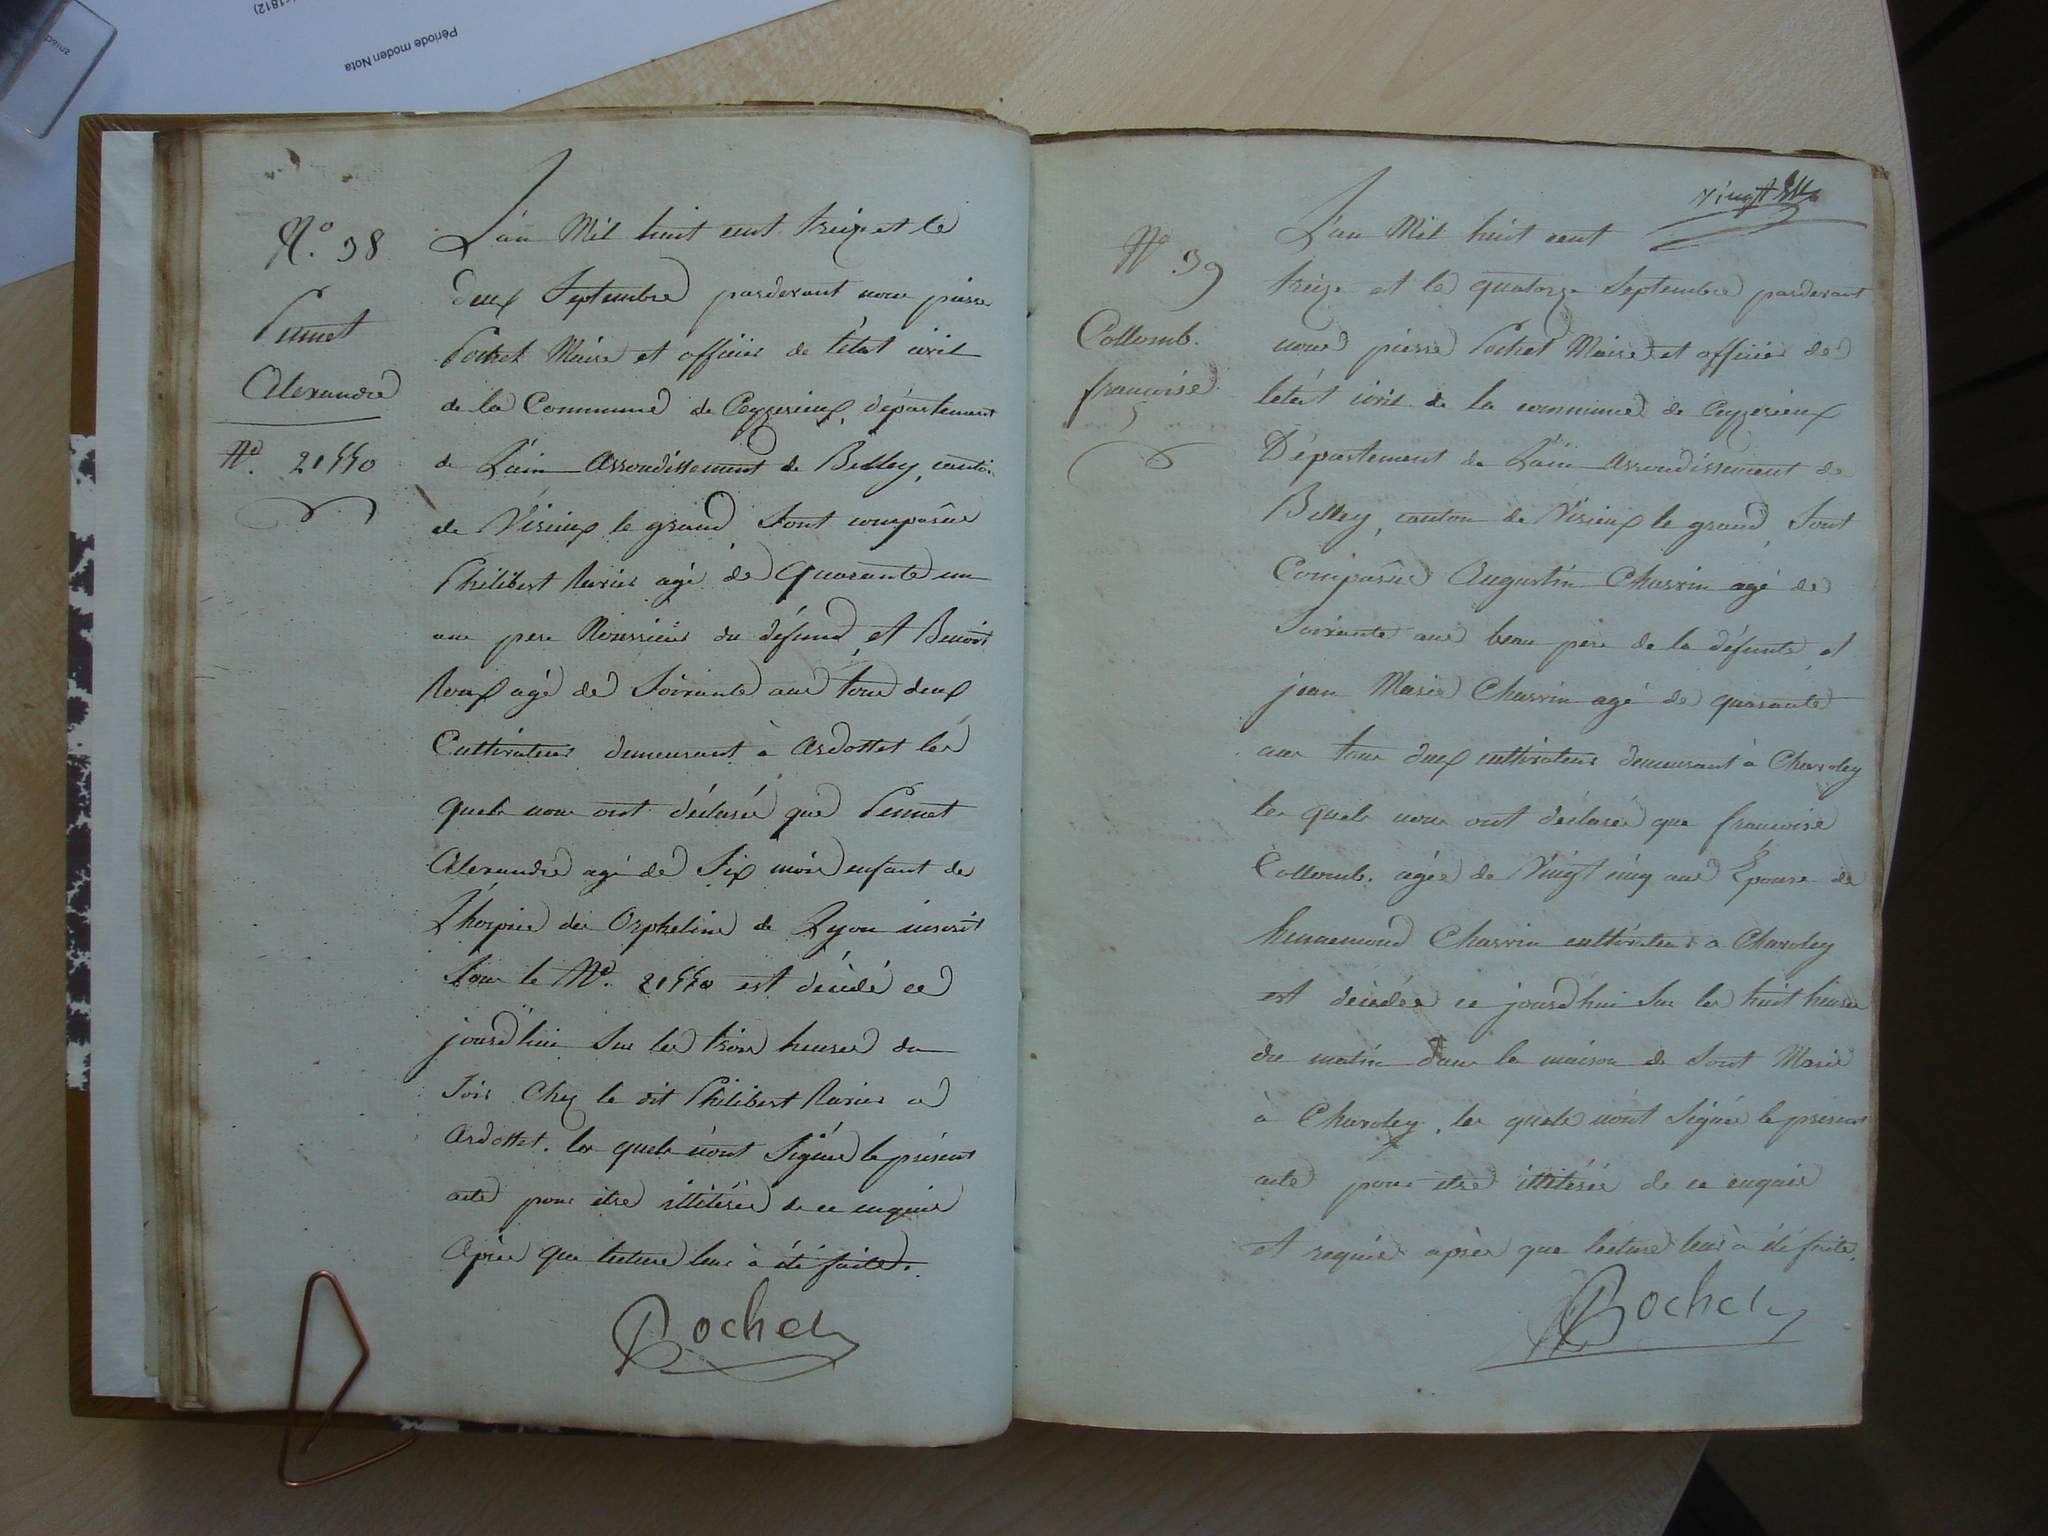 1812)
Période moden Nota
N.º 38
Pernet
Alexandre
Nº. 21550
L'an Mil huit cent treize et le
deux Septembre pardevant nous pierre
Pochet Maire et officier de l'état civil
de la Commune de Ceyzerieux, département
de L'ain Arrondissement de Belley, canton
de Virieux le grand, Sont comparûs
Philibert Ravier agé de Quarante un
ans pere Nourricier du défund, et Benoit
Roux agé de Soixante ans tous deux
Cultivateurs demeurant à Ardosset les
quels nous ont déclaré que Pernet
Alexandre agé de Six mois enfant de
L'hospice des Orphelins de Lyon inscrit
Sous le Nº. 21550 est décédé ce
jourd'hui Sur les trois heures du
Soir Chez le dit Philibert Ravier a
Ardosset. les quels n'ont Signée le présent
acte pour être illitérée de ce enquis
Après que lecture leur à été faite.
Pochet
Nº 39
Collomb.
françoise
L'an Mil huit cent
treize et le quatorze Septembre pardevant
nous pierre Pochet Maire et officier de
letât civil de la commune de Ceyzerieux
Département de L'ain Arrondissement de
Belley, canton de Virieux le grand, Sont
Comparûs Augustin Charvin agé de
Soixante ans beau pere de la défunte, et
jean Marie Charvin agé de quarante
ans tous deux cultivateurs demeurant à Charoley
les quels nous ont déclaré que françoise
Collomb. agée de Vingt cinq ans Epouse de
Charvin cultivateur a Charoley
est decédée ce jourd'hui Sur les huit heures
du matin dans la maison de Sont Marie
à Charoley, les quels n'ont Signée le présent
acte pour être illitérée de ce enquis
et requis après que lecture leur à été faite.
Pochet